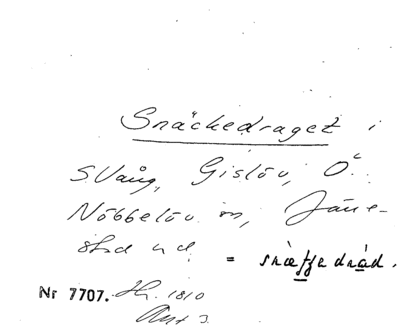 Snäckedraget i
S. Vång, Gislöv, Ö.
Nöbbelöv m, Järre-
stad hd.
= snætjedrád.
Nr 7707. Hr. 1810